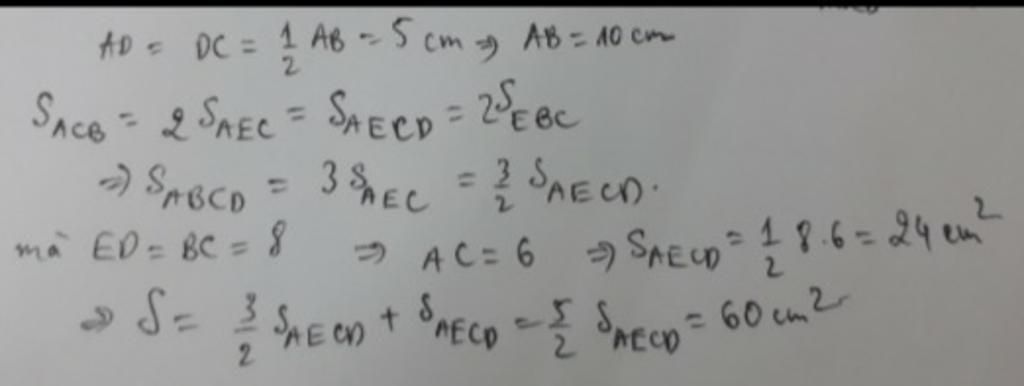 AD = DC = 1/2 AB = 5 cm ⇒ AB = 10 cm
S_ACB = 2 S_AEC = S_AECD = 2S_EBC
⇒ S_ABCD = 3 S_AEC = 3/2 S_AECD.
mà ED = BC = 8 ⇒ AC = 6 ⇒ S_AECD = 1/2 8.6 = 24 cm²
⇒ S = 3/2 S_AECD + S_AECD = 5/2 S_AECD = 60 cm²